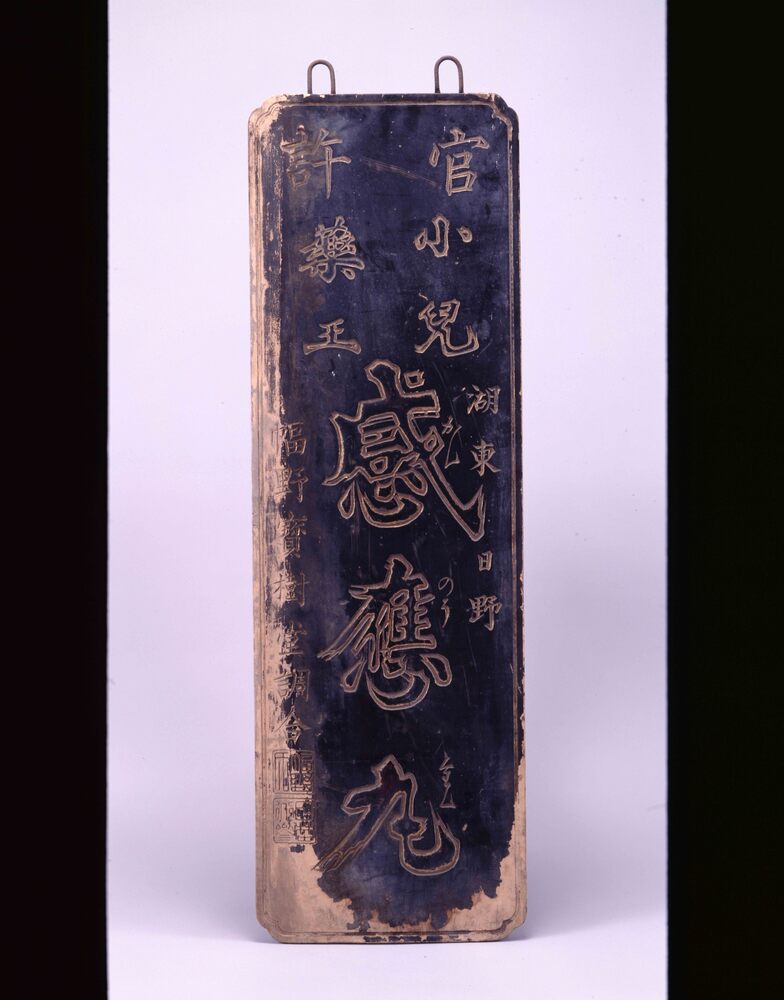 官許
小兒薬王
湖東日野
感應丸
かんのうぐ㔟ん
福野寶樹堂調合